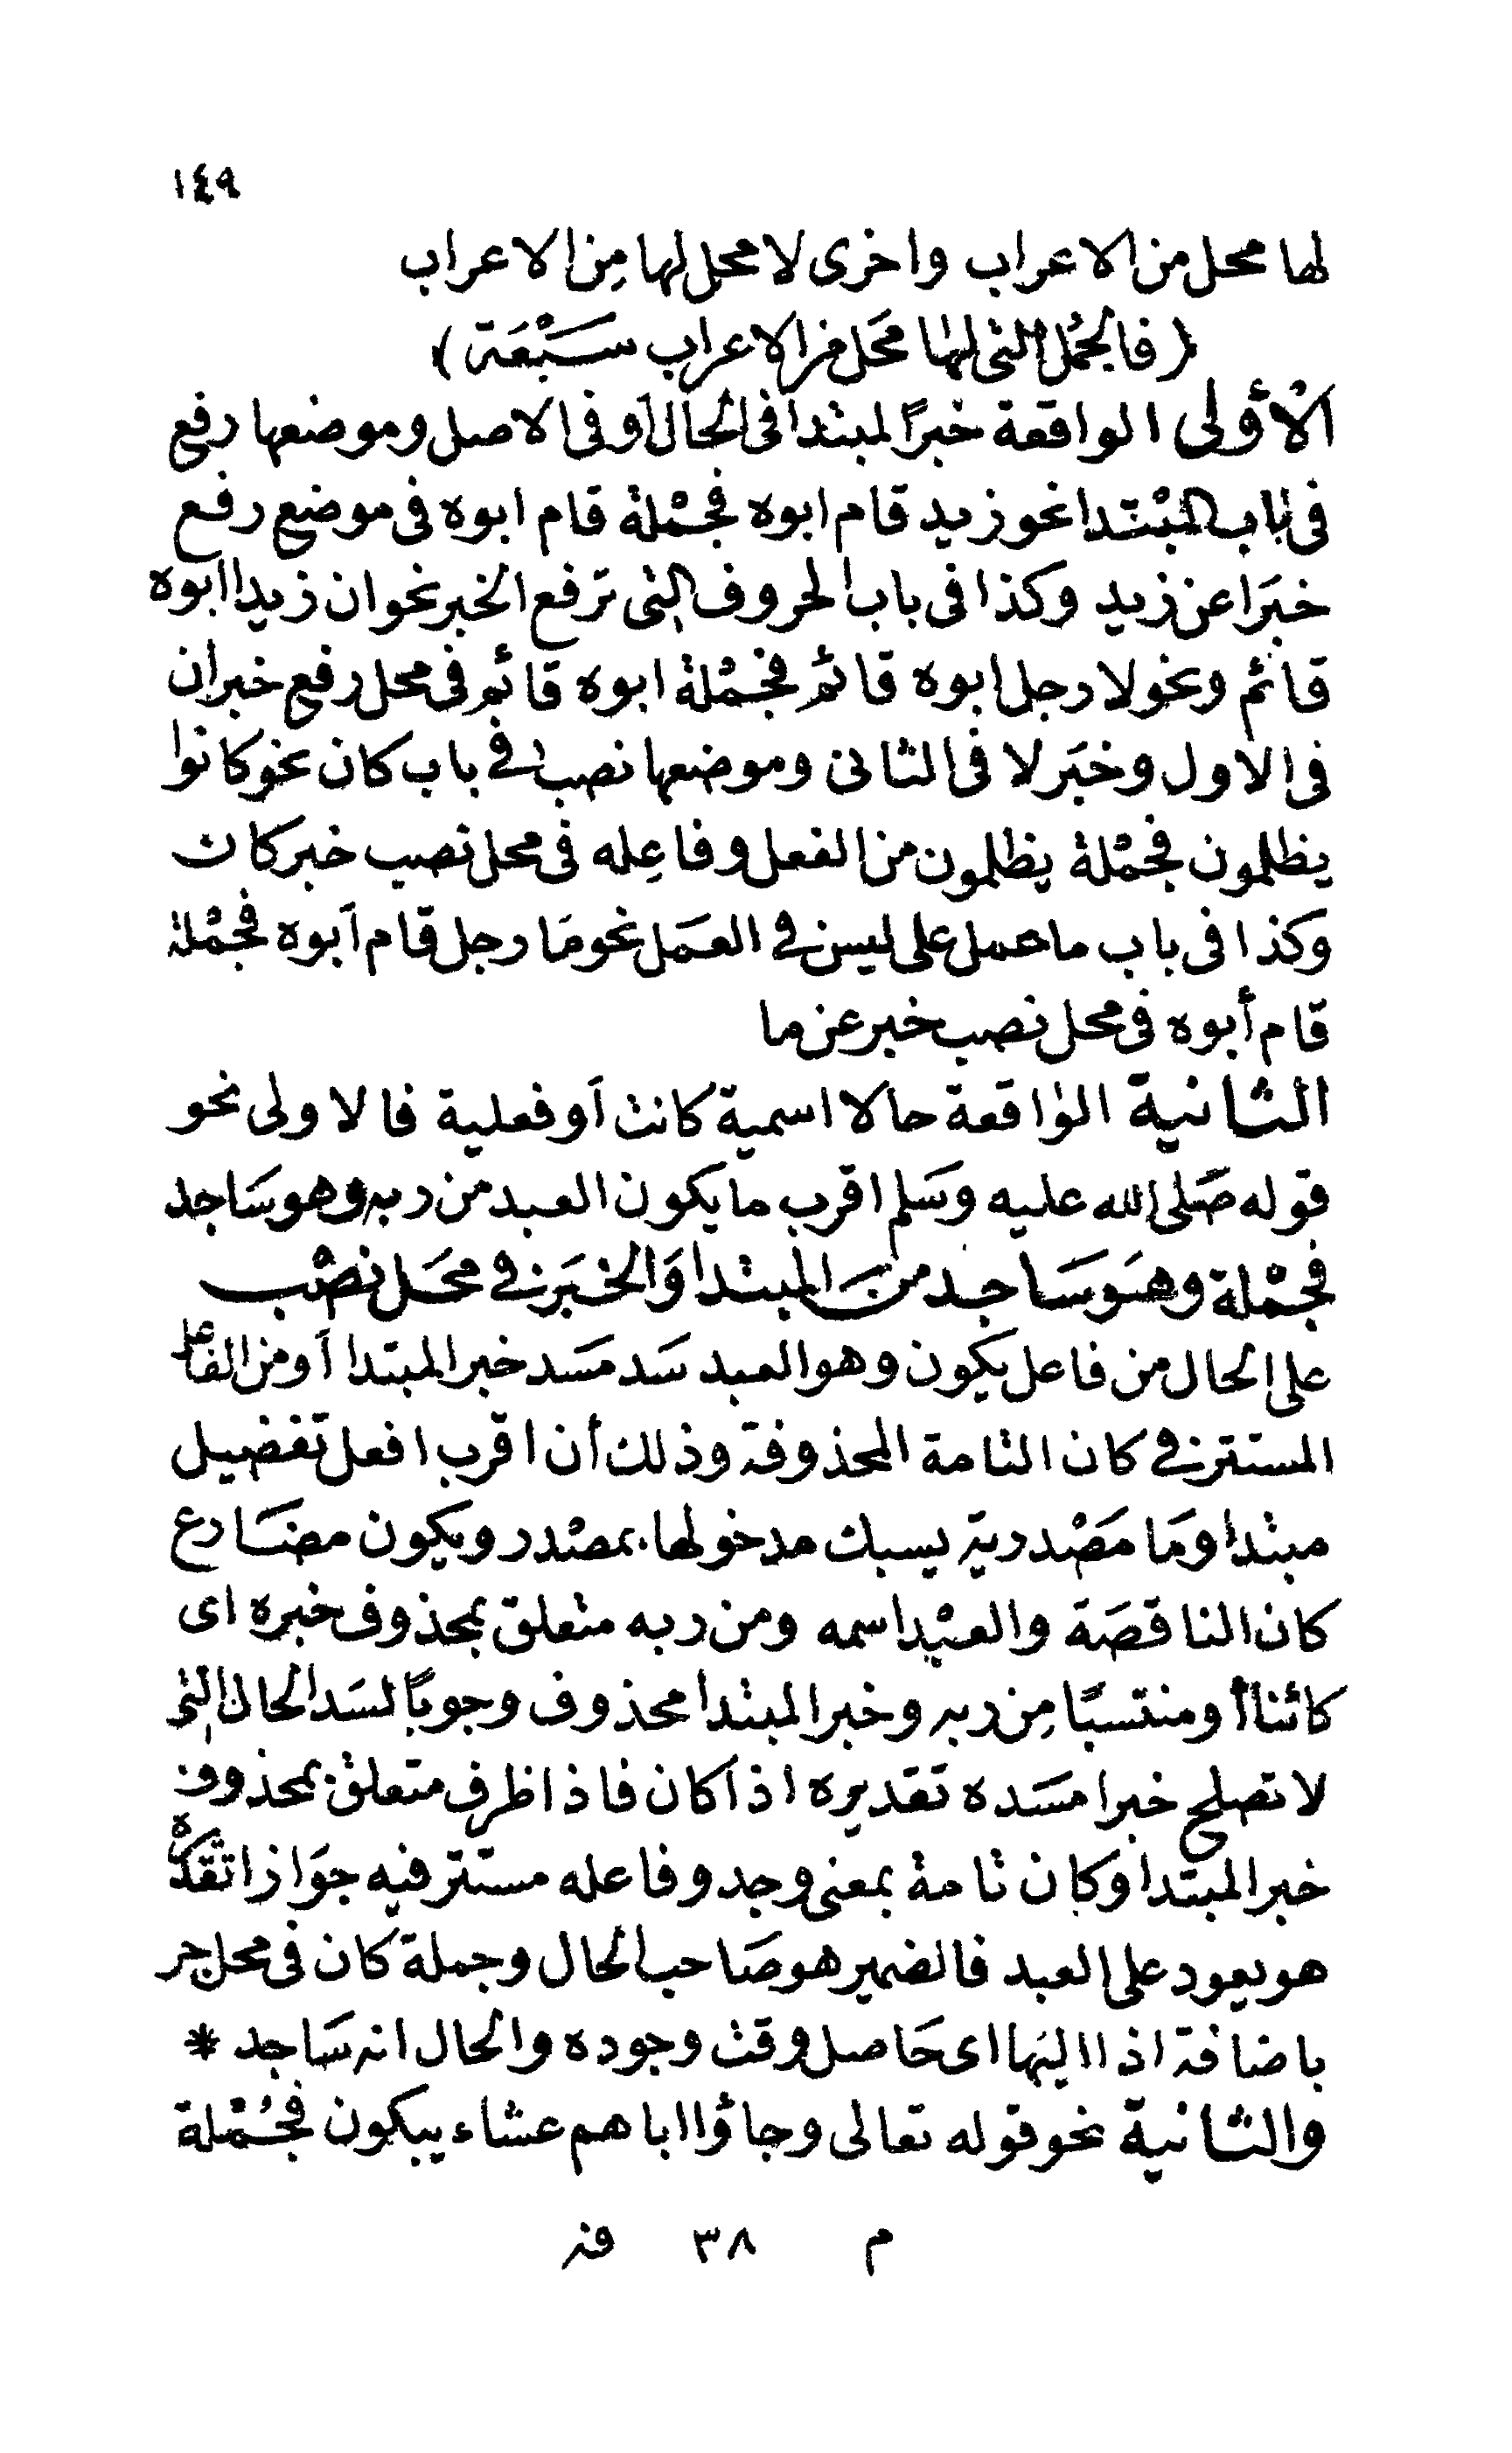 ١٤٩
لها محل من الاعراب واخرى لا محل لها مِن الاعراب
(فالجُمل التى لها محَل من الاعراب سَبْعَة)
الْأولى الواقعة خبرًا لمبتدا فى الحال أو فى الاصل وموضعها رفع
فى باب المبْتدا نحو زيد قام ابوه فجمْلة قام ابوه فى موضع رفع
خبَرا عن زيد وكذا فى باب الحروف التى ترفع الخبر نحو ان زيدا ابوه
قائم ونحو لا رجل ابوه قائم فجمْلة ابوه قائم فى محل رفع خبر ان
فى الاول وخبَر لا فى الثانى وموضعها نصب فى باب كان نحو كانوا
يظلمون فجمْلة يظلمون من الفعل وفاعِله فى محل نصب خبر كان
وكذا فى باب ما حمل على ليس فى العمَل نحو مَا رجل قام أبوه فجمْلة
قام أبوه فى محل نصب خبر عن ما
الثانية الواقعة حالا اسمية كانت أو فعلية فالاولى نحو
قوله صَلى الله عليه وسَلم اقرب ما يكون العبد من ربه وهو سَاجد
فجمْلة وهَو سَاجد من المبتدا وَالخبَر فى محَل نصْب
على الحال من فاعل يكون وهو العبد سَد مسَد خبر المبتدا أو من الفاعل
المستتر فى كان التامة المحذوفة وذلك أن اقرب افعل تفضيل
مبتدا ومَا مصْدرية يسبك مدخولها بمصْدر ويكون مضَارع
كان الناقصَة والعبْد اسمه ومن ربه متعلق بمحذوف خبره اى
كائنا أو منتسبًا مِن ربه وخبر المبتدا محذوف وجوبًا لسَد الحال التى
لا تصلح خبرا مسَده تقديره اذا كان فاذا ظرف متعلق بمحذوف
خبر المبتدا وكان تامة بمعنى وجد وفاعله مستتر فيه جوَازا تقْدره
هو يعود على العبد فالضمير هو صَاحب الحال وجملة كان فى محل جر
باضافة اذا اليها اى حَاصل وقت وجوده والحال انه سَاجد *
والثانية نحو قوله تعالى وجاؤا اباهم عشاء يبكون فجُمْلة
م ٣٨ فـ